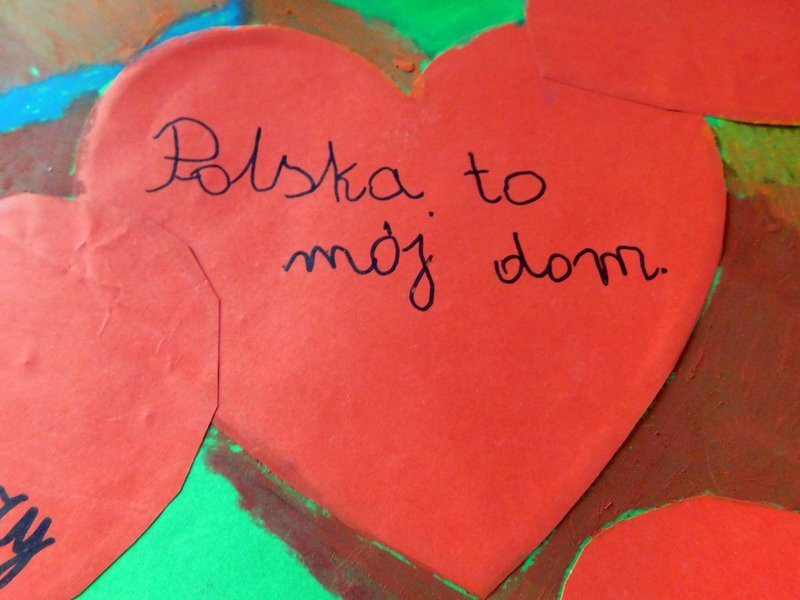 Polska to
mój dom.